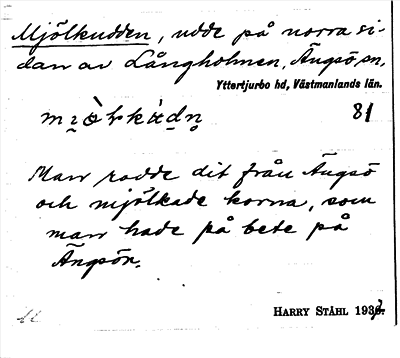 Mjölkudden, udde på norra si-
dan av Långholmen, Ängsö sn,
Yttertjurbo hd, Västmanlands län.
81
Man rodde dit från Ängsö
och mjölkade korna, som
man hade på bete på
Ängsön.
HARRY STÅHL 1937.